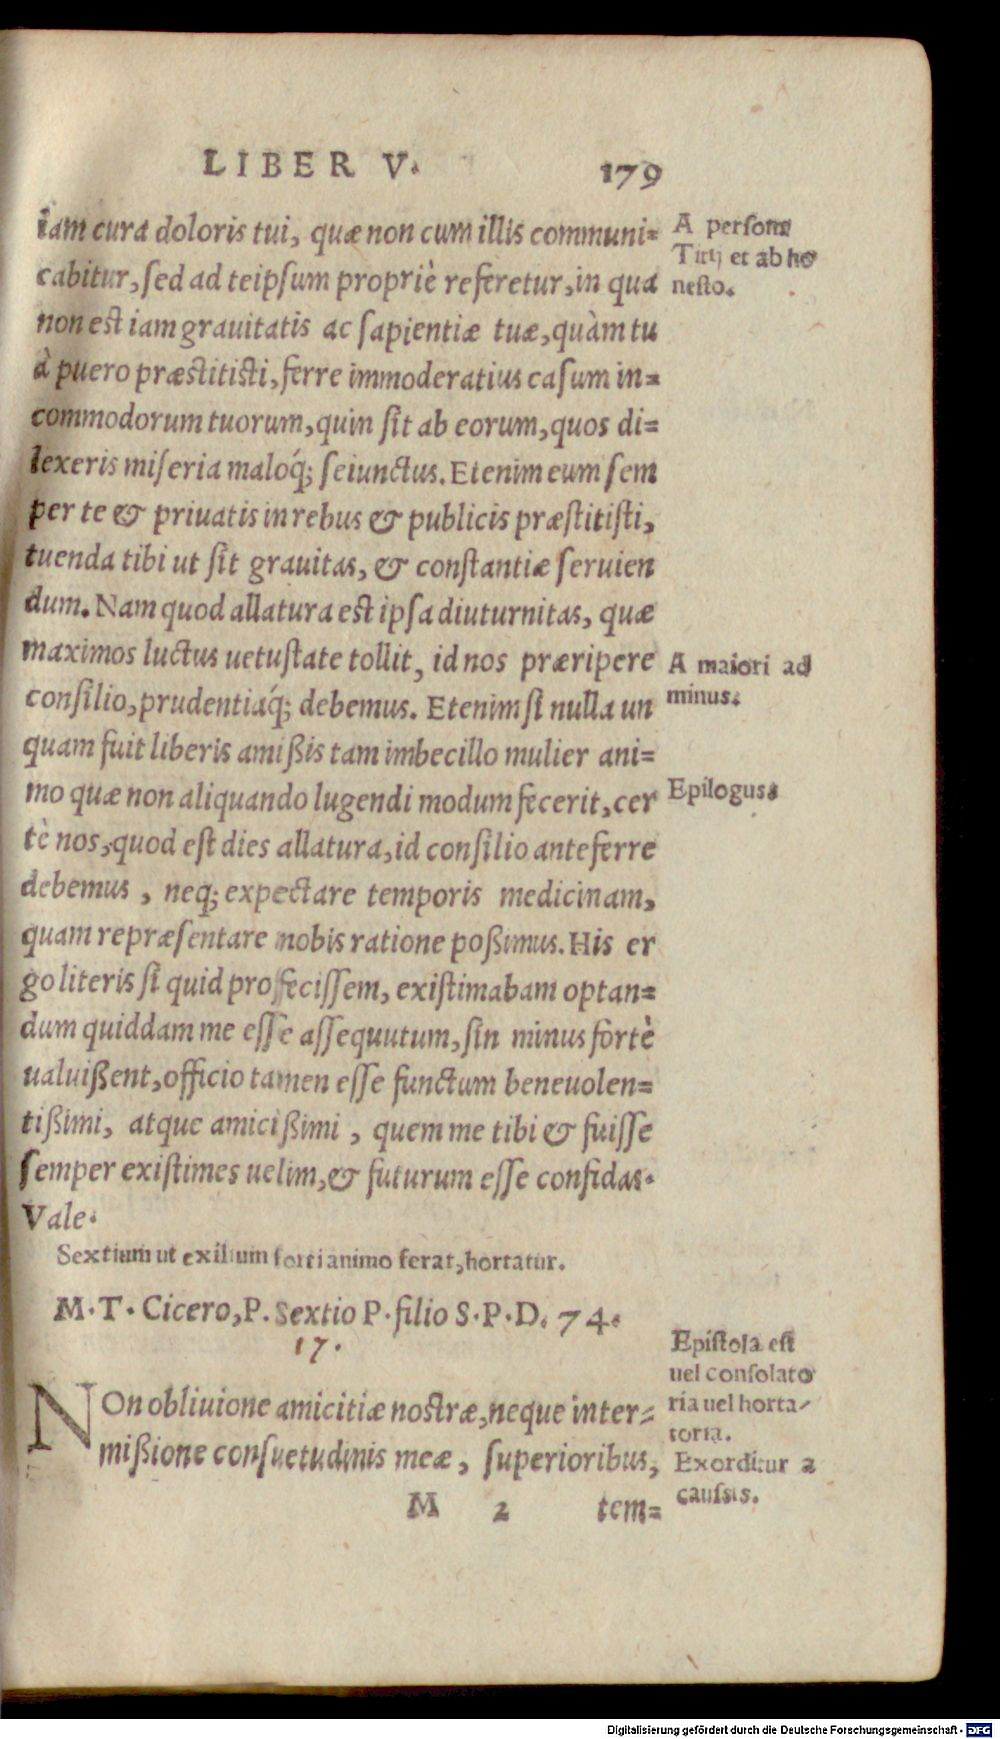 LIBER V. 179
iam cura doloris tui, quæ non cum illis communi=
cabitur, sed ad teipsum propriè referetur, in qua
non est iam grauitatis ac sapientiæ tuæ, quàm tu
à puero præstitisti, ferre immoderatius casum in=
commodorum tuorum, quàm sit ab eorum, quos di=
lexeris miseria maloq́; seiunctus. Etenim eum sem
per te & priuatis in rebus & publicis præstitisti,
tuenda tibi ut sit grauitas, & constantiæ seruien
dum. Nam quod allatura est ipsa diuturnitas, quæ
maximos luctus uetustate tollit, id nos præripere
consilio, prudentiaq́; debemus. Etenim si nulla un
quam fuit liberis amißis tam imbecillo mulier ani=
mo quæ non aliquando lugendi modum fecerit, cer
tè nos, quod est dies allatura, id consilio anteferre
debemus, neq; expectare temporis medicinam,
quam repræsentare nobis ratione poßimus. His er
go literis si quid profecissem, existimabam optan=
dum quiddam me esse assequutum, sin minus fortè
ualuißent, officio tamen esse functum beneuolen=
tißimi, atque amicißimi, quem me tibi & fuisse
semper existimes uelim, & futurum esse confidas.
Vale.
Sextium ut exilium forti animo ferat, hortatur.
M. T. Cicero, P. Sextio P. filio S. P. D. 74.
17.
NOn obliuione amicitiæ nostræ, neque inter=
mißione consuetudinis meæ, superioribus,
M 2 tem=
A persona
Titij et ab ho
nesto.
A maiori ad
minus.
Epilogus.
Epistola est
uel consolato
ria uel horta-
toria.
Exorditur a
caussis.
Digitalisierung gefördert durch die Deutsche Forschungsgemeinschaft - DFG